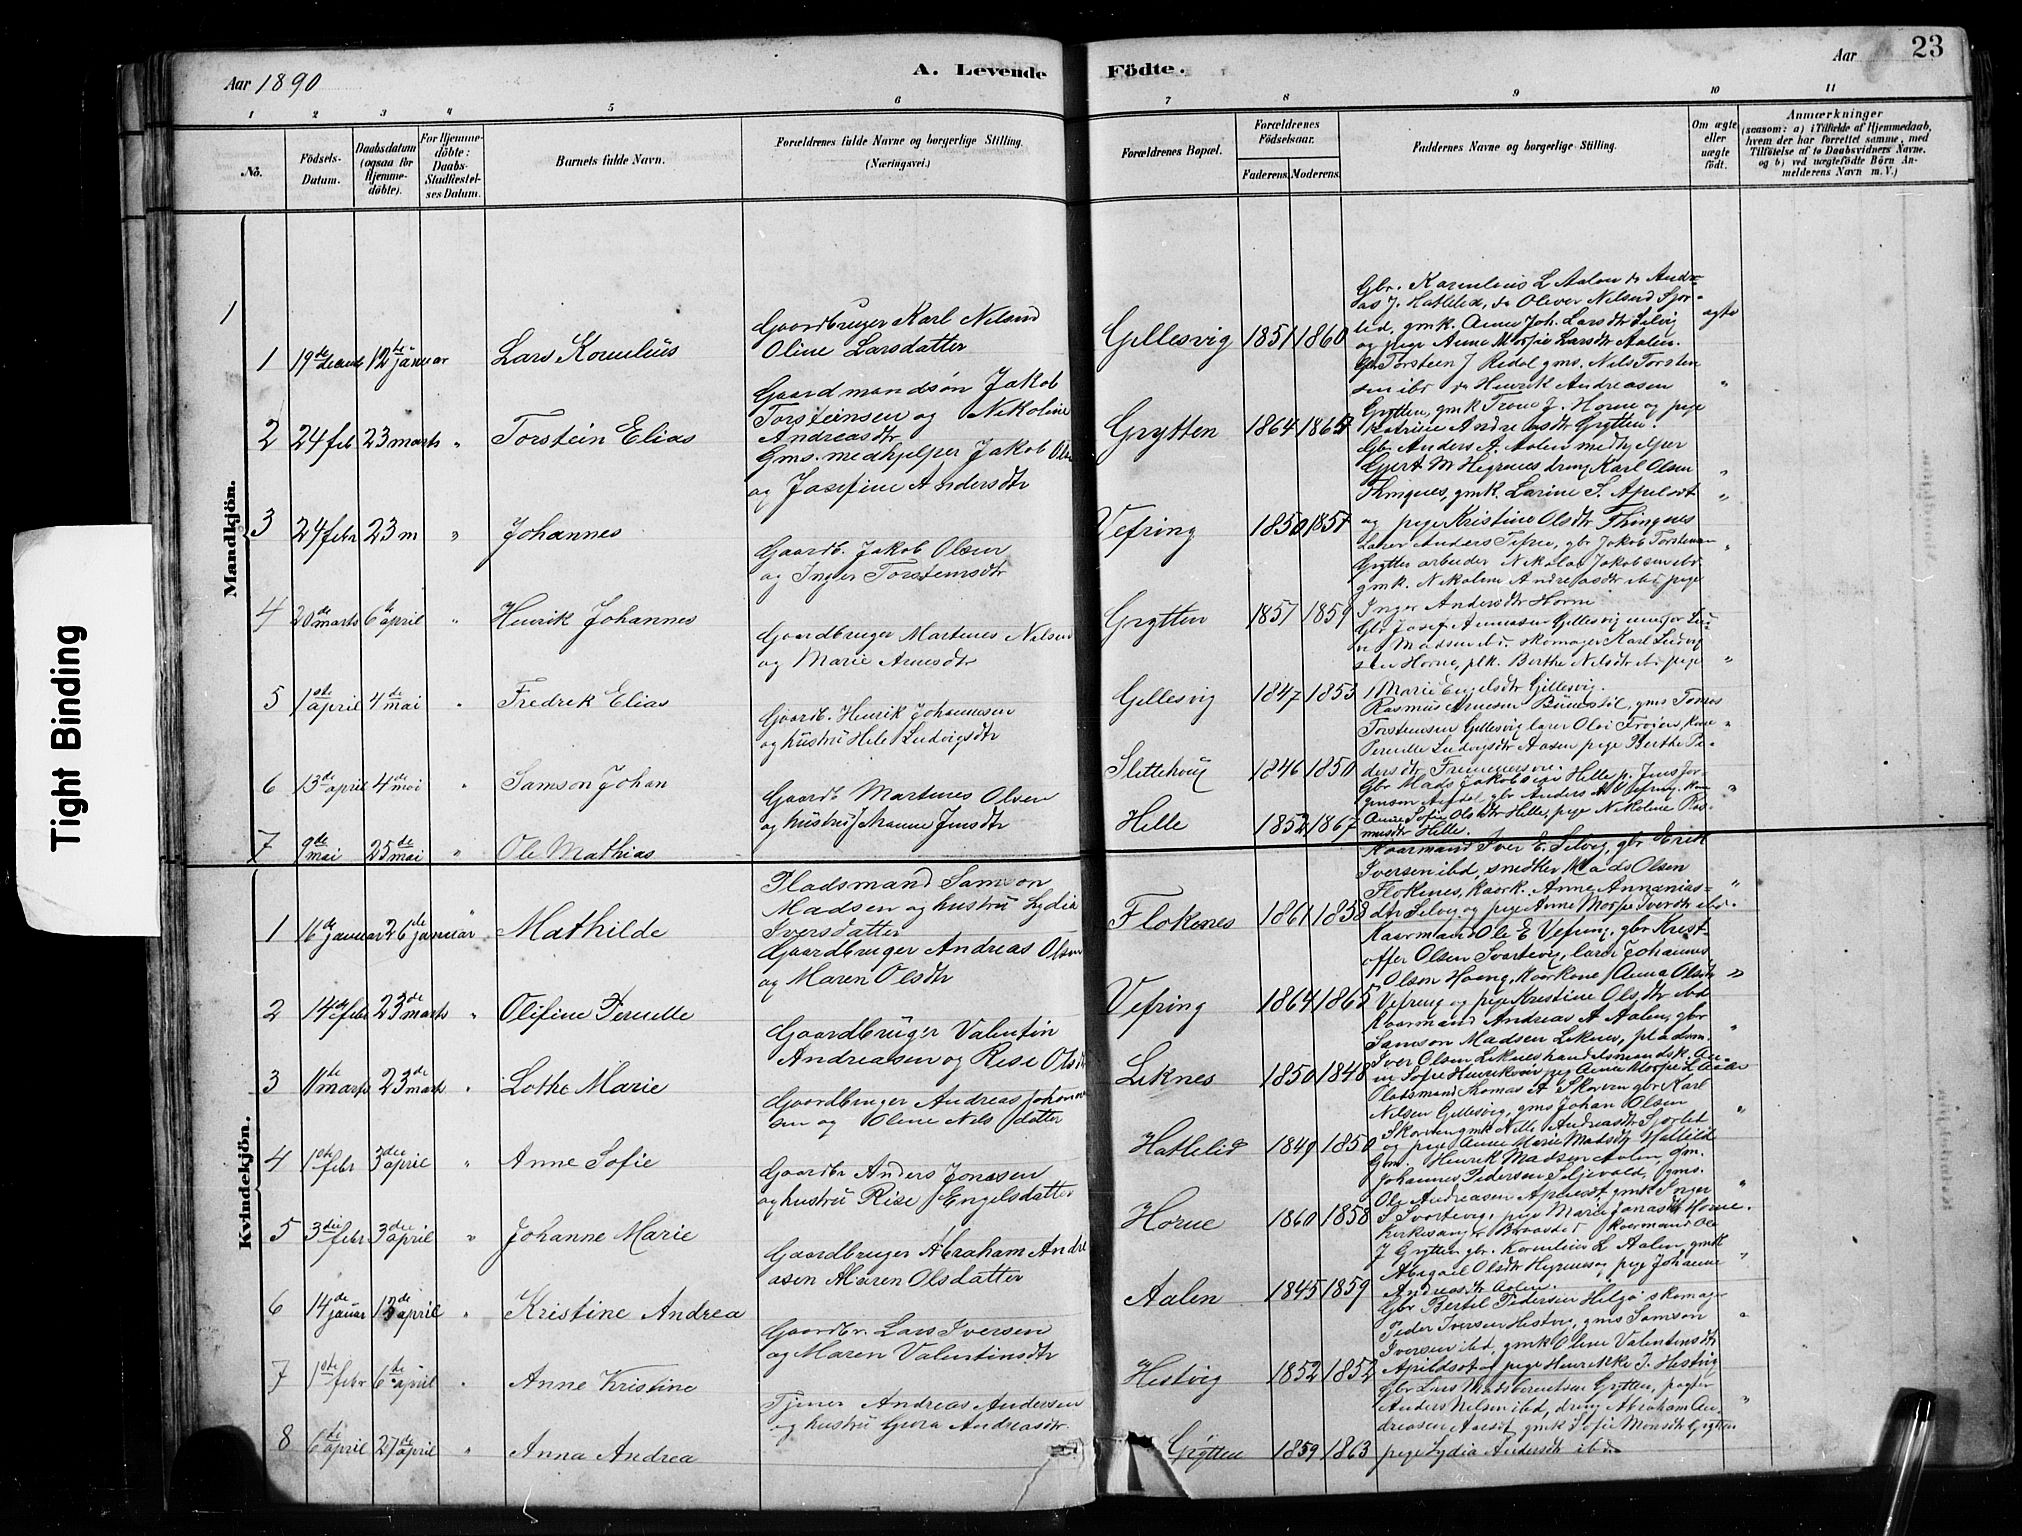 Aar 1890
A. Levende
Födte.
Aar
23
1 2 3 4 5 6 7 8 9 10 11
No.
Födsels-Datum.
Daabsdatum (ogsaa for Hjemmedöbte).
For Hjemmedöbte: Daabs Stadfæstelses Datum.
Barnets fulde Navn.
Forældrenes fulde Navne og borgerlige Stilling. (Næringsvei.)
Forældrenes Bopæl.
Forældrenes Födselsaar.
Faderens. Moderens.
Faddernes Navne og borgerlige Stilling.
Om ægte eller uægte födt.
Anmærkninger
(saasom: a) i Tilfælde af Hjemmedaab, hvem der har forrettet samme, med Tilföielse af to Daabsvidners Navne. og b) ved uægtefödte Börn Anmelderens Navn m. V.)
Tight Binding
Mandkjön.
1
1 19de decemb 12te januar Lars Kornelius
Gaardbruger Karl Nilsen
Oline Larsdatter
Gillesvig 1851 1860
Gbr. Kornelius L Aalen do Andre-
as J. Hatlelid, do Oliver Nilsen Sjor-
lid, gmk. Anne Joh. Larsdtr Selvig
og pige Anne Marie Larsdtr Aalen.
ægte
2 24 feb 23 marts " Torstein Elias
Gaardmandsön Jakob
Torsteinsen og Nikoline
Andreasdtr
Grytten 1864 1865
Gbr Torsteen J Redal gms. Nils Torsten
sen ibd do Henrik Andreasen
Grytten, gmk Trone J. Horne og pige
Katrine Andreasdtr Grytten.
"
3 24 febr 23 m " Johannes
Gms. medhjelper Jakob Olsen
og Josefine Andersdtr
Vefring 1850 1857
Gbr Anders A. Aalen medhjelper
Gjert M Hegrenes dreng Karl Olsen
Thingnes, gmk. Larine S. Apelset
og pige Kristine Olsdtr Thingnes
"
4 20de marts 6te april " Henrik Johannes
Gaardb. Jakob Olsen
og Inger Torsteinsdtr
Grytten 1857 1859
Lærer Anders Tefre, gbr Jakob Torstensen
Grytten arbeider Nikolai Jakobsen ibd
gmk. Nikoline Andreasdtr ibd pige
Inger Andersdtr Horne
"
5 1ste april 4de mai " Fredrik Elias
Gaardbruger Martines Nilsen
og Marie Arnesdtr
Gillesvig 1847 1853
Madsen ibd. skomager Karl Ludvig
sen Horne, plk. Berthe Nilsdtr ibd pige
Marie Engelsdtr Gillesvig.
"
6 13de april 4de mai " Samson Johan
Gaardb. Henrik Johannesen
og hustru Hele Ludvigsdtr
Slettehoug 1846 1850
Torstensen Gillesvig lærer Olai Fröien, kone
Pernille Ludvigsdtr Aasen pige Berthe Pe-
"
7 9de mai 25de mai " Ole Mathias
Gaardb Martines Olsen
og hustru Johanne Jensdtr
Hille 1852 1867
Gbr Mads Jakobsen Hille
Anne Sofie Olsdtr Hille, pige Nikoline Ras-
musdtr Hille.
"
Kvindekjön.
1 16de januar 26de januar " Mathilde
Pladsmand Samson
Madsen og hustru Lydia
Iversdatter
Flokenes 1861 1858
Kaarmand Iver E. Selvig, gbr Erik
Iversen ibd, snedker Mads Olsen
Flokenes, kaark. Anne Annanias-
dtr Selvig og pige Anne Iversdtr ibd.
"
2 14de febr 23de marts " Olifine Pernille
Gaardbruger Andreas Olsen
og Maren Olsdtr
Vefring 1864 1865
Kaarmand Ole E Vefring, gbr Krist-
offer Olsen Svartevig, lærer Johannes
Olsen Houng, kaarkone Anna Olsdtr
Vefring og pige Kristine Olsdtr ibd
"
3 11te marts 23de marts " Lothe Marie
Gaardbruger Valentin
Andreasen og Rise Olsdtr
Leknes 1850 1848
Kaarmand Andreas A Aalen, gbr
Samson Madsen Leknes, pladsm.
Iver Olsen Leknes handelsmandsk. An-
"
4 1ste febr 3die april " Anne Sofie
Gaardbruger Andreas Johannes
sen og Oline Nilsdatter
Hatlelid 1849 1850
Pladsmand Thomas A Skorven gbr Karl
Nilsen Gillesvig, gms Johan Olsen
Skorven gmk Nille Andreasdtr Sjorlid
og pige Anne Marie Madsdtr Hatlelid
"
5 3die febr 3die april " Johanne Marie
Gaardbr Anders Jonasen
og hustru Rise Engelsdatter
Horne 1860 1858
Gm. Henrik Madsen Aalen, Gm.
Johannes Pedersen Seljevold, gms.
Ole Andreasen Apelset gmk Inger
S Svartevig, pige Marie Jonasdtr Horne.
"
6 14de januar 13de april " Kristine Andrea
Gaardbruger Abraham Andre
asen Maren Olsdatter
Aalen 1845 1859
Kirkesanger Braastad kaarmand Ole
J Grytten gbr. Kornelius L Aalen, gmk
Abigael Olsdtr Hegrenes, pige Johanne
Andreasdtr Aalen.
"
7 1ste febr 6te april " Anne Kristine
Gaardbr. Lars Iversen
og Maren Valentinsdtr
Hestvig 1852 1852
Gbr Bertil Pedersen Helgö skomager
Peder Iversen Hestvig, gms Samson
Iversen ibd, gmk Oline Valentinsdtr
"
8 6te april 27de april " Anna Andrea
Tjener Andreas Andersen
og hustru Gura Andreasdtr
Grytten 1859 1863
Anders Nilsen ibd, dreng Abraham An-
dreasen Aarset gmk Sofie Monsdtr Grytten
pige Lydia Andersdtr ibd
"